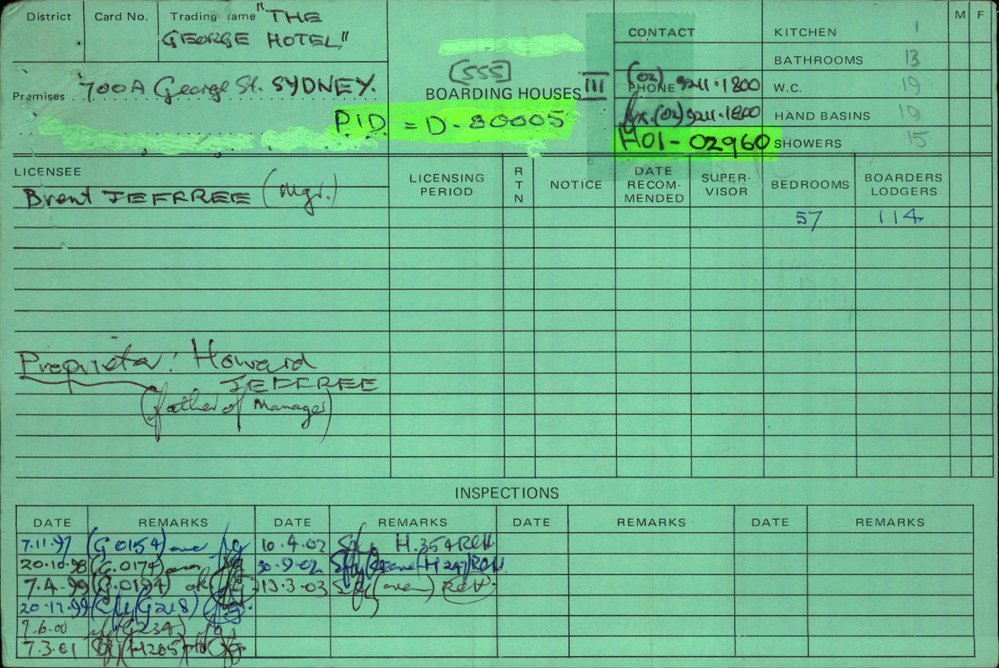 District
Card No.
Trading name "THE
GEORGE HOTEL"
Premises 700A George St. SYDNEY.
[555]
BOARDING HOUSES III
P.I.D. = D-80005
CONTACT
(02)
PHONE 9211·1800
fx. (02) 9211·1800
H01-02960
KITCHEN 1
BATHROOMS 13
W.C. 19
HAND BASINS 19
SHOWERS 15
M F
LICENSEE
LICENSING PERIOD
RTN
NOTICE
DATE RECOM-MENDED
SUPER-VISOR
BEDROOMS
BOARDERS LODGERS
Brent JEFFREE (Mgr.)
57 114
Proprietor: Howard
JEFFREE
(father of Manager)
INSPECTIONS
DATE REMARKS DATE REMARKS DATE REMARKS DATE REMARKS
7.11.97 (G.0154) 10.4.02 H.354 RCH
20.10.98 (G.0174) 30.9.02 RCH
7.4.99 (G.0194) ok 13.3.03 RCH
20.12.99 (G218)
7.6.00 (G234)
7.3.01 (H205)